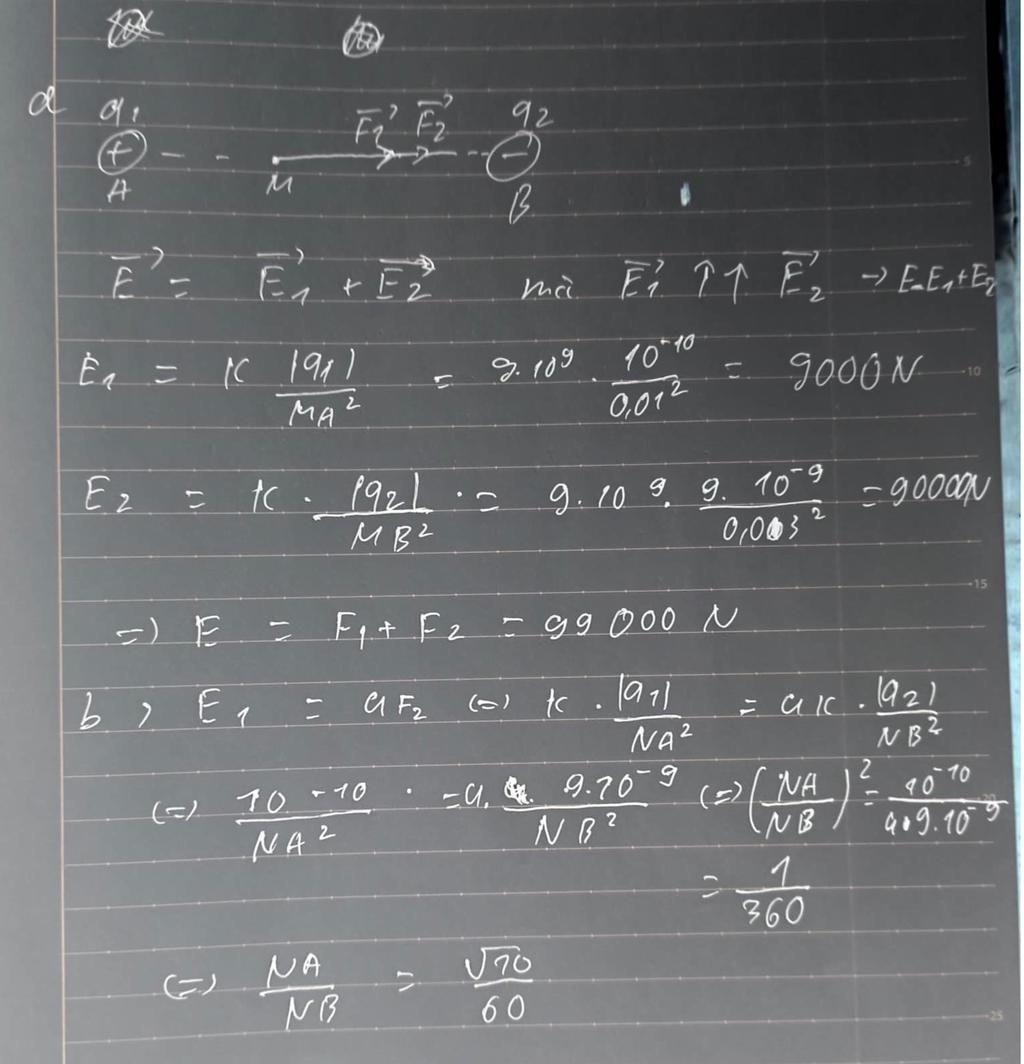 a q₁ F₁⃗ F₂⃗ q₂
+ M −
A B
E⃗ = E₁⃗ + E₂⃗ mà E₁⃗ ↑↑ E₂⃗ → E=E₁+E₂
E₁ = K |q1| / MA² = 9.10⁹ . 10⁻¹⁰ / 0,01² = 9000N
E₂ = K . |q2| / MB² = 9.10⁹ . 9.10⁻⁹ / 0,03² = 90000N
=) E = F₁ + F₂ = 99000 N
b) E₁ = 4F₂ (=) k . |q1| / NA² = 4K . |q2| / NB²
(=) 10⁻¹⁰ / NA² = 4. 9.10⁻⁹ / NB² (=) (NA / NB)² = 10⁻¹⁰ / 4.9.10⁻⁹
= 1 / 360
(=) NA / NB = √10 / 60
5
10
15
20
25